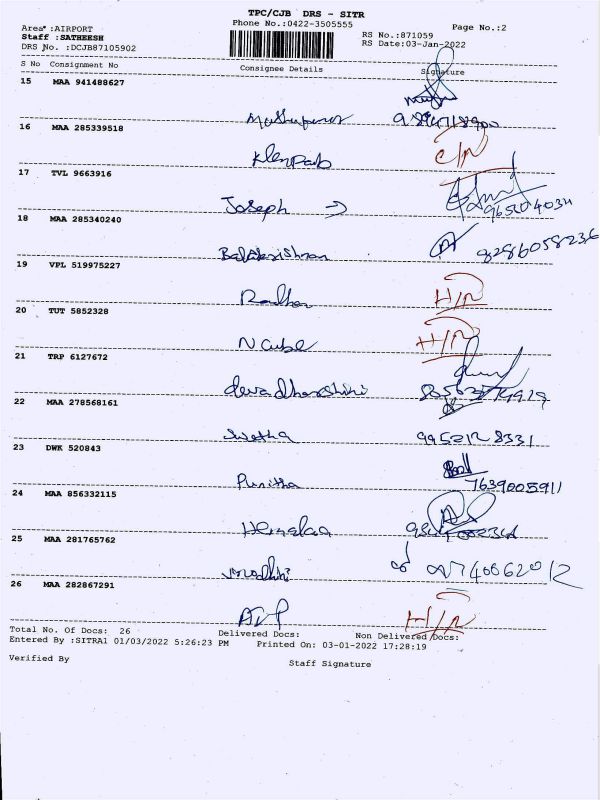 TPC/CJB DRS - SITR
Area* :AIRPORT
Phone No.:0422-3505555
Page No.:2
Staff :SATHEESH
RS No.:871059
DRS No. :DCJB87105902
RS Date:03-Jan-2022
S No Consignment No Consignee Details Signature
15 MAA 941488627
16 MAA 285339518
C/N
17 TVL 9663916
Joseph →
18 MAA 285340240
Balakrishnan 8286058236
19 VPL 519975227
Radha H/N
20 TUT 5852328
N Cube H/N
21 TRP 6127672
devadharshini
22 MAA 278568161
Swetha 9952128331
23 DWK 520843
Punitha 7639005911
24 MAA 856332115
25 MAA 281765762
26 MAA 282867291
H/N
Total No. Of Docs: 26 Delivered Docs: Non Delivered Docs:
Entered By :SITRA1 01/03/2022 5:26:23 PM Printed On: 03-01-2022 17:28:19
Verified By Staff Signature